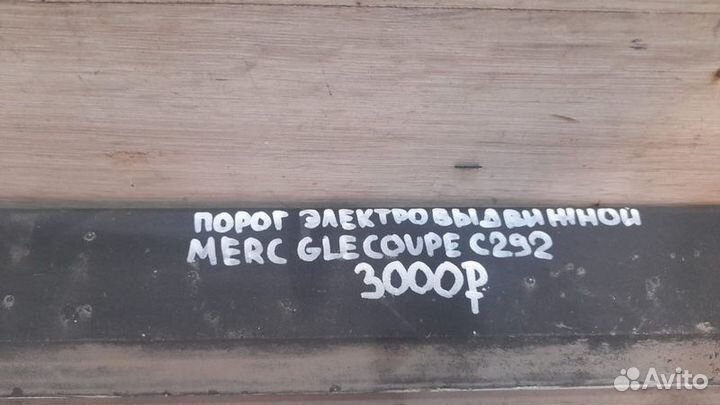 ПОРОГ ЭЛЕКТРОВЫДВИЖНОЙ
MERC GLE COUPE C292
3000₽
Avito